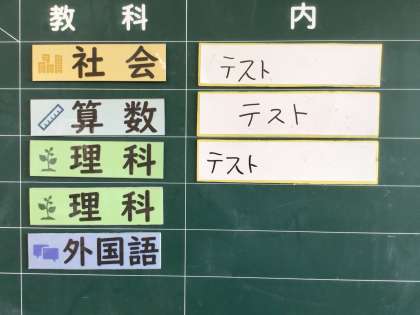 教科 内
社会 テスト
算数 テスト
理科 テスト
理科
外国語